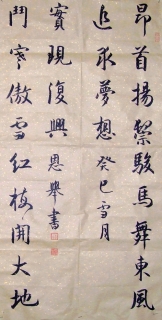 昂首揚鬃駿馬舞東風
追求夢想癸巳雪月
鬥寒傲雪紅梅開大地
實現復興恩舉書